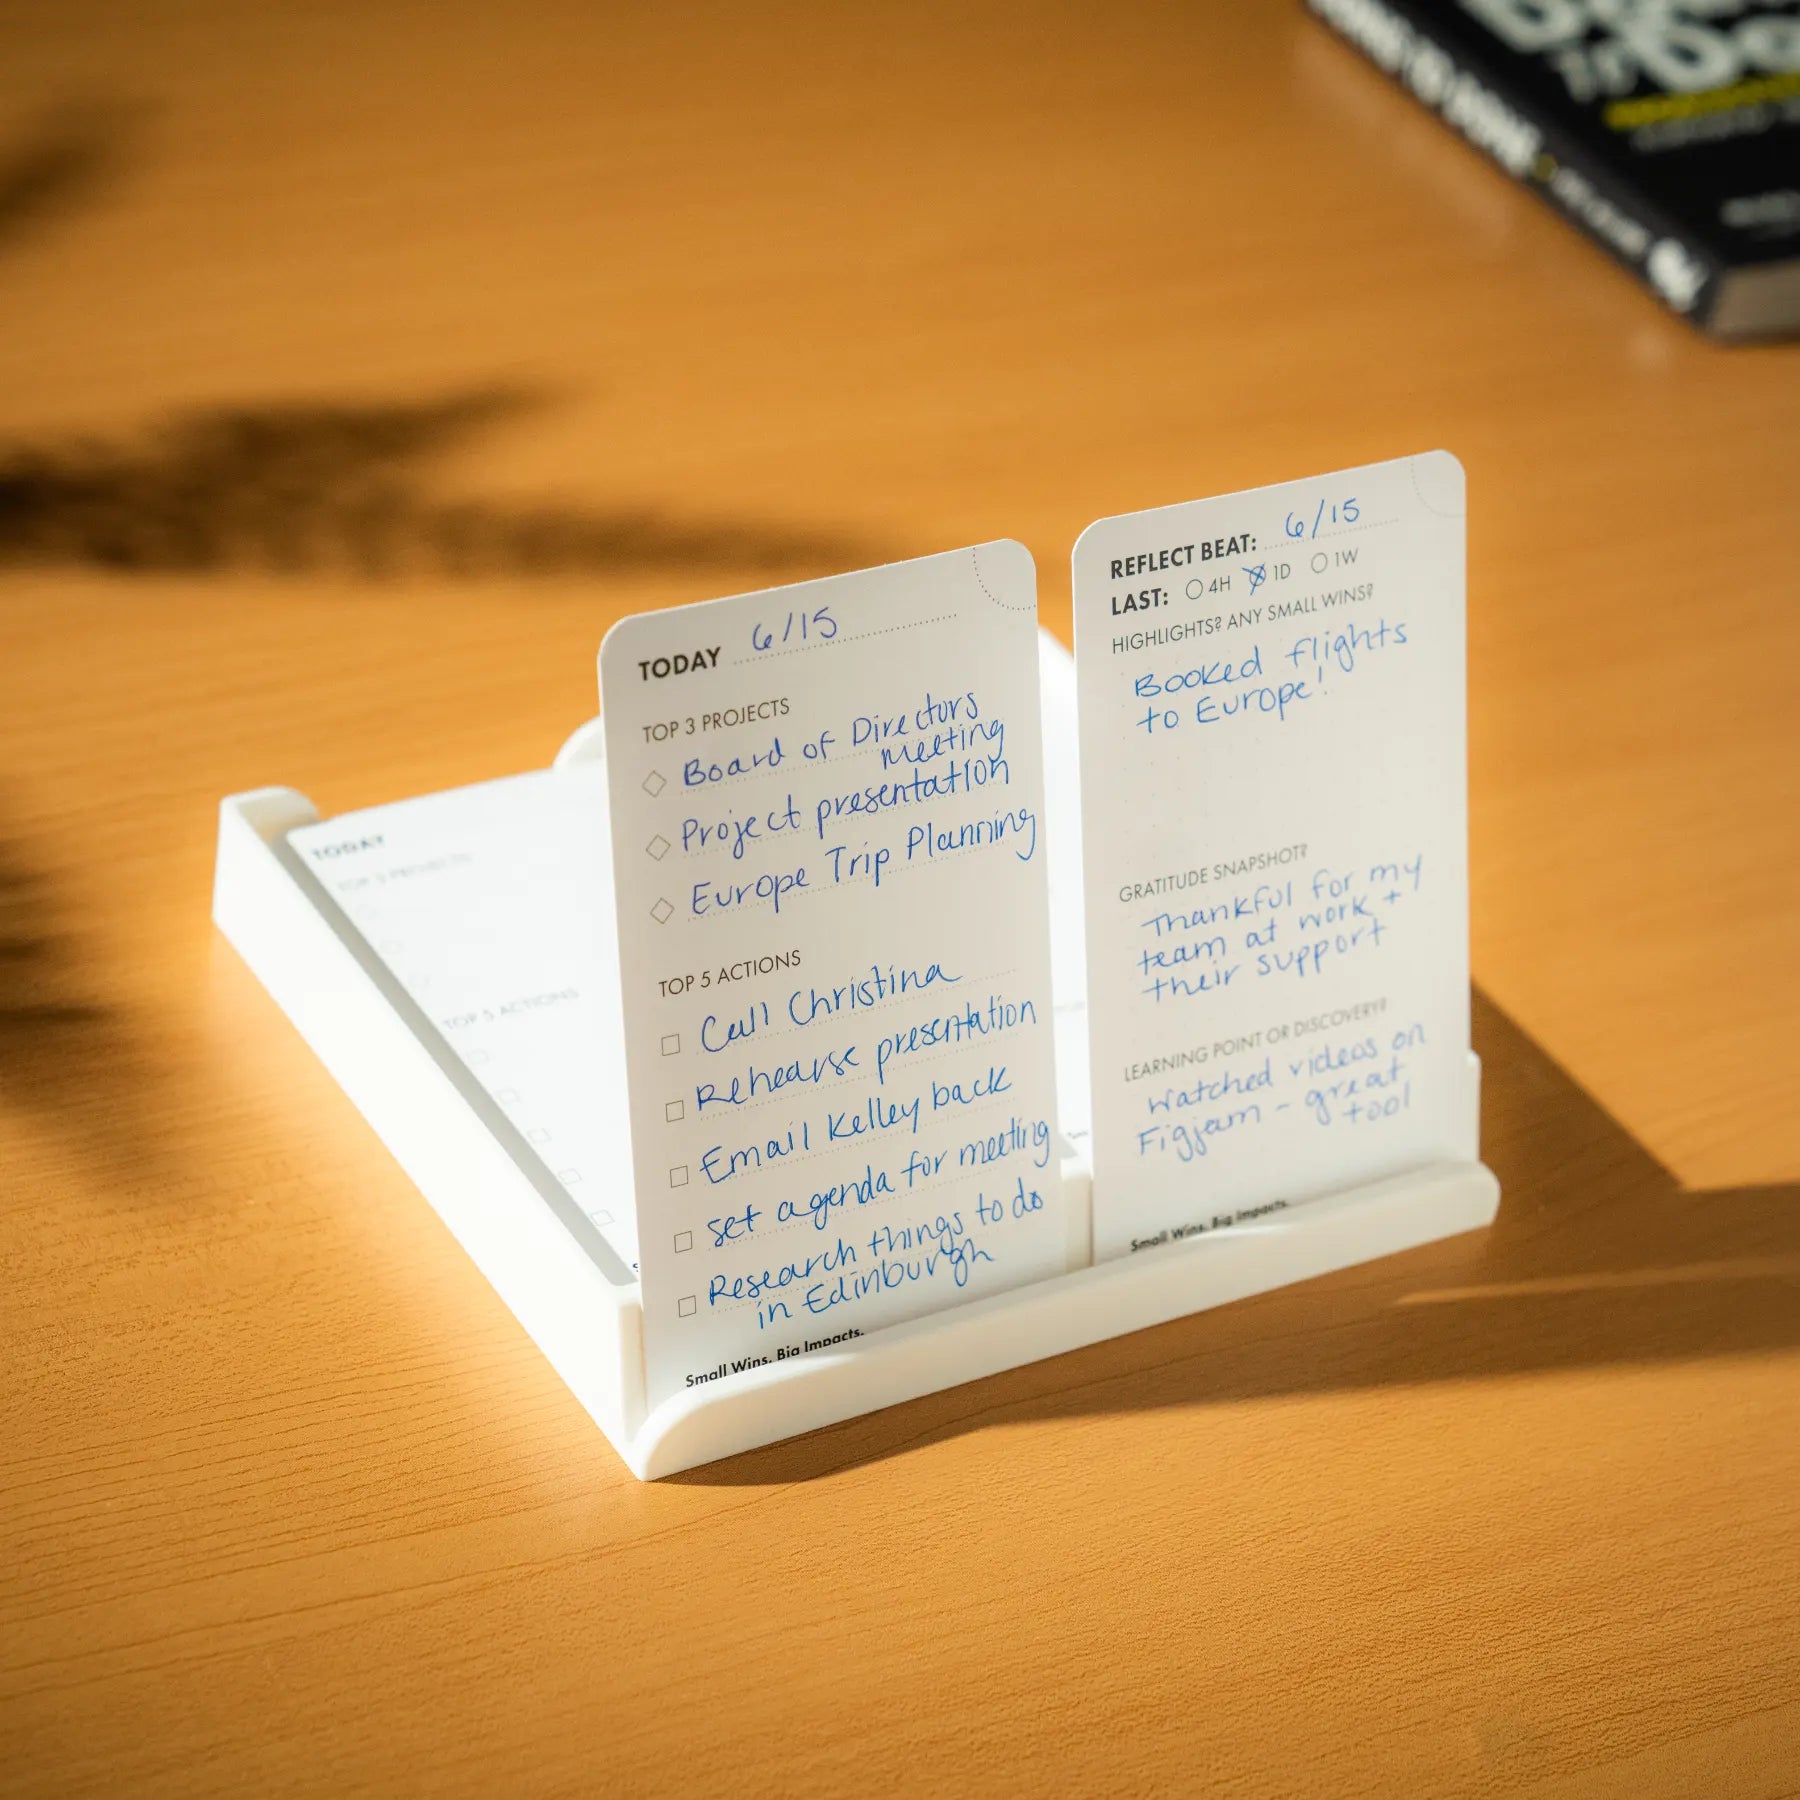 TODAY 6/15
TOP 3 PROJECTS
Board of Directors
meeting
Project presentation
Europe Trip Planning
TOP 5 ACTIONS
Call Christina
Rehearse presentation
Email Kelley back
set agenda for meeting
Research things to do
in Edinburgh
Small Wins. Big Impacts.
REFLECT BEAT: 6/15
LAST: 4H 1D 1W
HIGHLIGHTS? ANY SMALL WINS?
Booked flights
to Europe!
GRATITUDE SNAPSHOT?
Thankful for my
team at work +
their support
LEARNING POINT OR DISCOVERY?
Watched videos on
Figjam - great
tool
Small Wins. Big Impacts.
TODAY
TOP 3 PROJECTS
TOP 5 ACTIONS